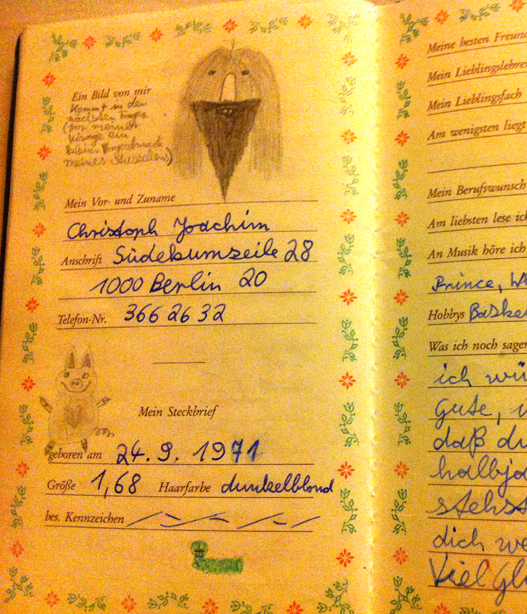 Ein Bild von mir
kommt in den
nächsten Tagen
meines
Mein Vor- und Zuname
Christoph Joachim
Anschrift Südekumzeile 28
1000 Berlin 20
Telefon-Nr. 366 26 32
Mein Steckbrief
geboren am 24. 9. 1971
Größe 1,68 Haarfarbe dunkelblond
bes. Kennzeichen
Meine besten Freund
Mein Lieblingslehre
Mein Lieblingsfach
Am wenigsten liegt
Mein Berufswunsch
Am liebsten lese ich
An Musik höre ich
Prince,
Hobbys Baske
Was ich noch sagen
ich wü
Gute,
daß du
halbja
stehst
dich we
Viel Gl